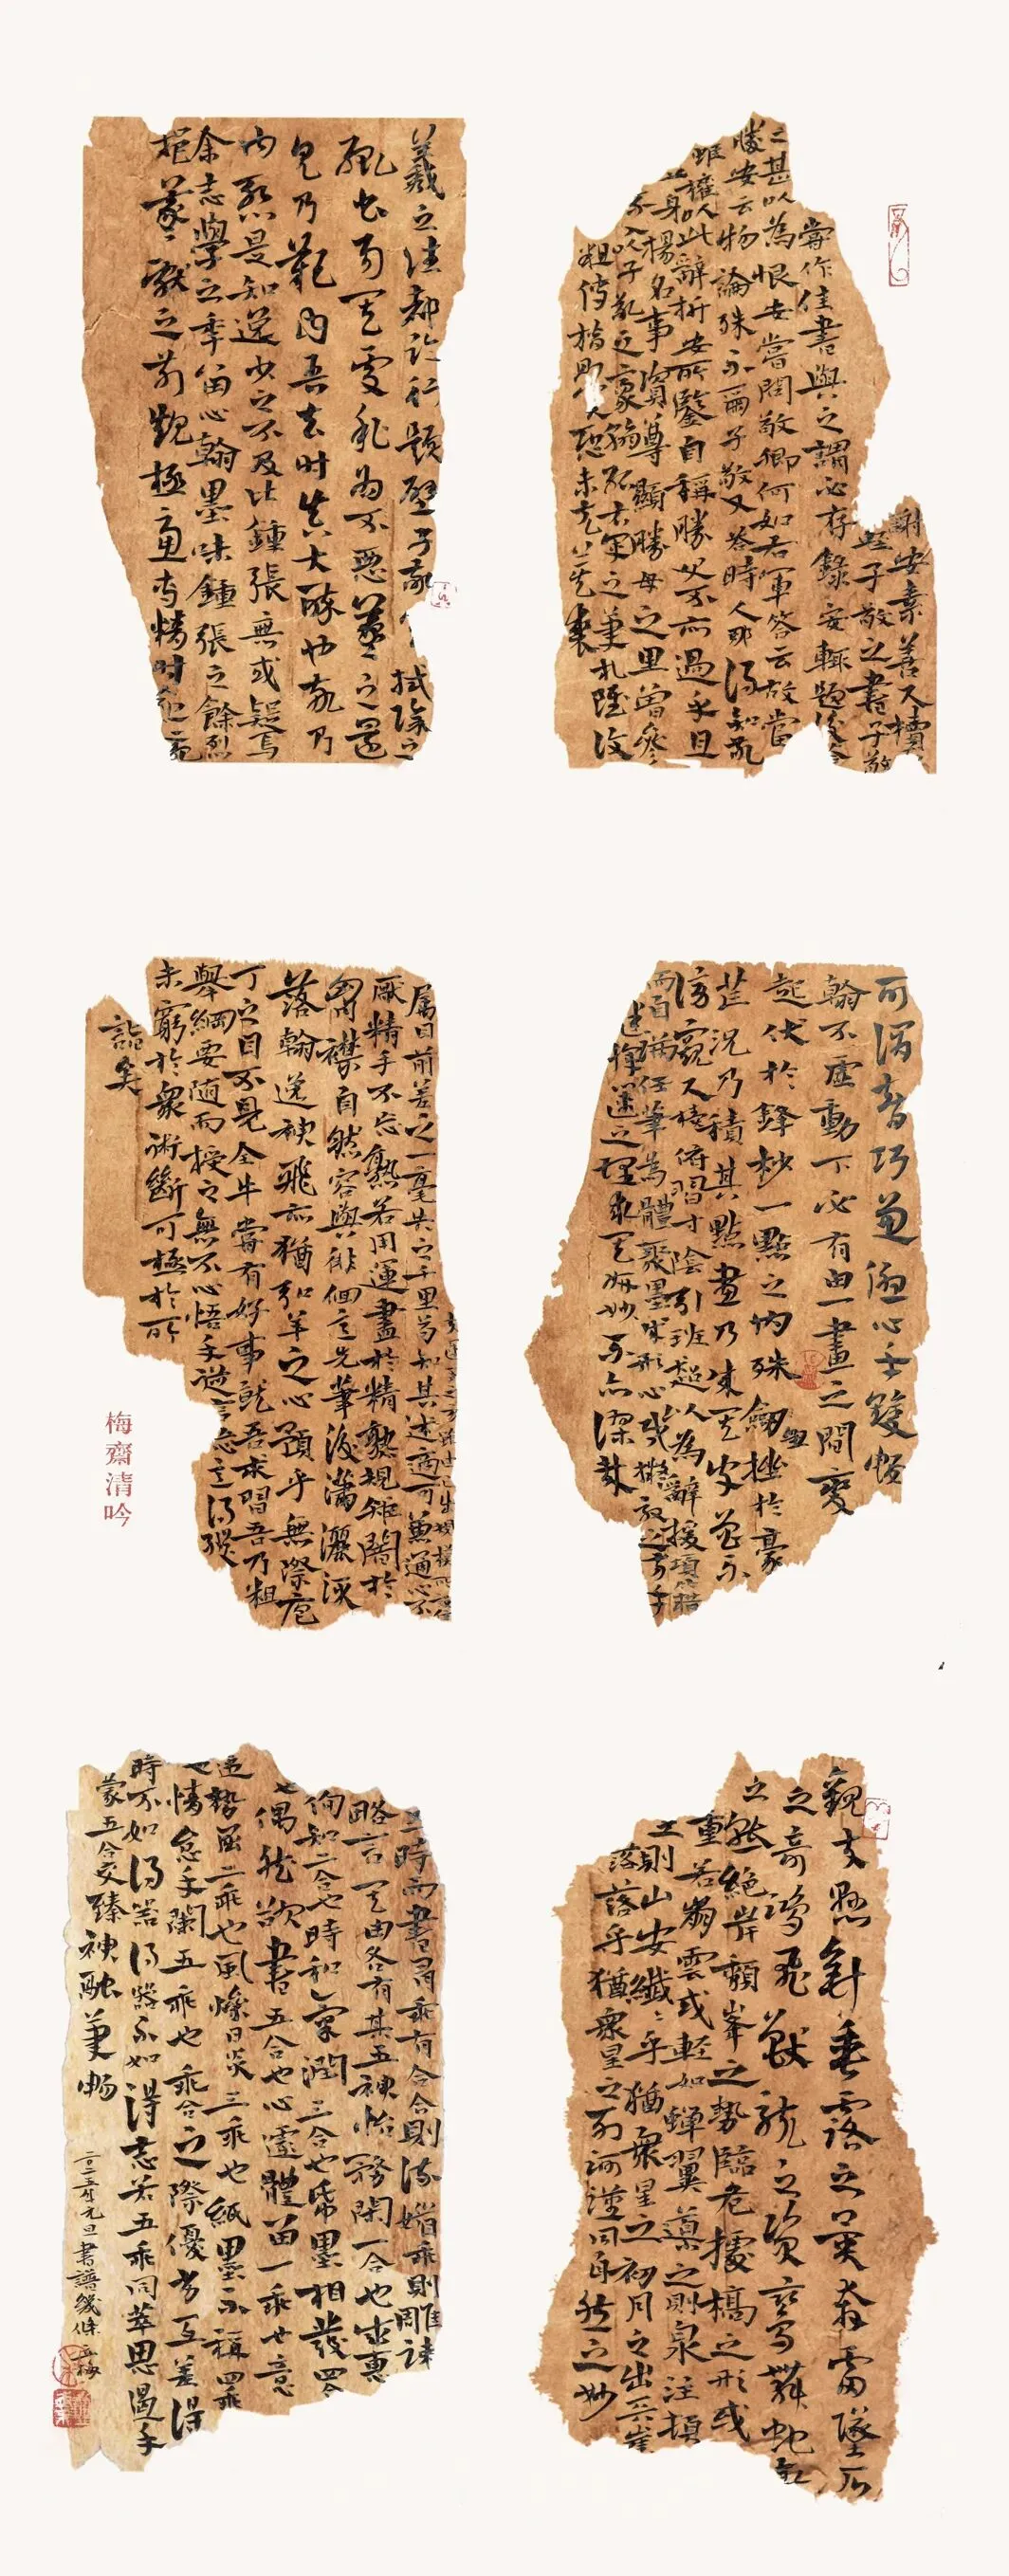 謝安素善尺牘
輕子敬之書子敬
嘗作佳書與之謂必存錄安輒題後答
之甚以為恨安嘗問敬卿何如右軍答云故當
勝安云物論殊不爾子敬又答時人那得知敬
雖權以此辭折安所鑒自稱勝父不亦過乎且
立身揚名事資尊顯勝母之里曾參
不入以子敬之豪翰紹右軍之筆札雖復
粗傳楷則恐未克箕裘
羲之往都臨行題壁子敬拭除之
輒書易其處私為不惡羲之還
見乃歎曰吾去時真大醉也敬乃
內慙是知逸少之不及比鍾張無或疑焉
余志學之年留心翰墨味鍾張之餘烈
挹羲獻之前規極慮專精時逾二
可謂智巧兼優心手雙暢
翰不虛動下必有由一畫之間變
起伏於鋒杪一點之內殊衄挫於豪
芒況乃積其點畫乃成其字曾不
傍窺尺犢俯習寸陰引班超以為辭援項籍
而自滿任筆為體聚墨成形心昏擬效之方手
迷揮運之理求其妍妙不亦謬哉
夫運用之方雖由己出規模所
屬目前差之一毫失之千里苟知其術適可兼通心不
厭精手不忘熟若用運盡於精熟規矩闇於
胷襟自然容與徘徊意先筆後瀟灑流
落翰逸神飛亦猶弘羊之心預乎無際庖
丁之目不見全牛嘗有好事就吾求習吾乃粗
舉綱要隨而授之無不心悟手從言忘意得縱
未窮於衆術斷可極於所
詣矣
梅齋清吟
觀夫懸針垂露之異奔雷墜石
之奇鴻飛獸駭之資鸞舞蛇驚
之態絕岸頹峯之勢臨危據槁之形或
重若崩雲或輕如蟬翼導之則泉注頓
之則山安纖纖乎猶衆星之初月之出天崖
落落乎猶衆星之列河漢同自然之妙
一時而書有乖有合合則流媚乖則雕疎
略言其由各有其五神怡務閑一合也感惠
徇知二合也時和氣潤三合也紙墨相發四合
也偶然欲書五合也心遽體留一乖也意
違勢屈二乖也風燥日炎三乖也紙墨不稱四乖
也情怠手闌五乖也乖合之際優劣互差得
時不如得器得器不如得志若五乖同萃思遏手
蒙五合交臻神融筆暢
二〇二五年元旦書譜幾條